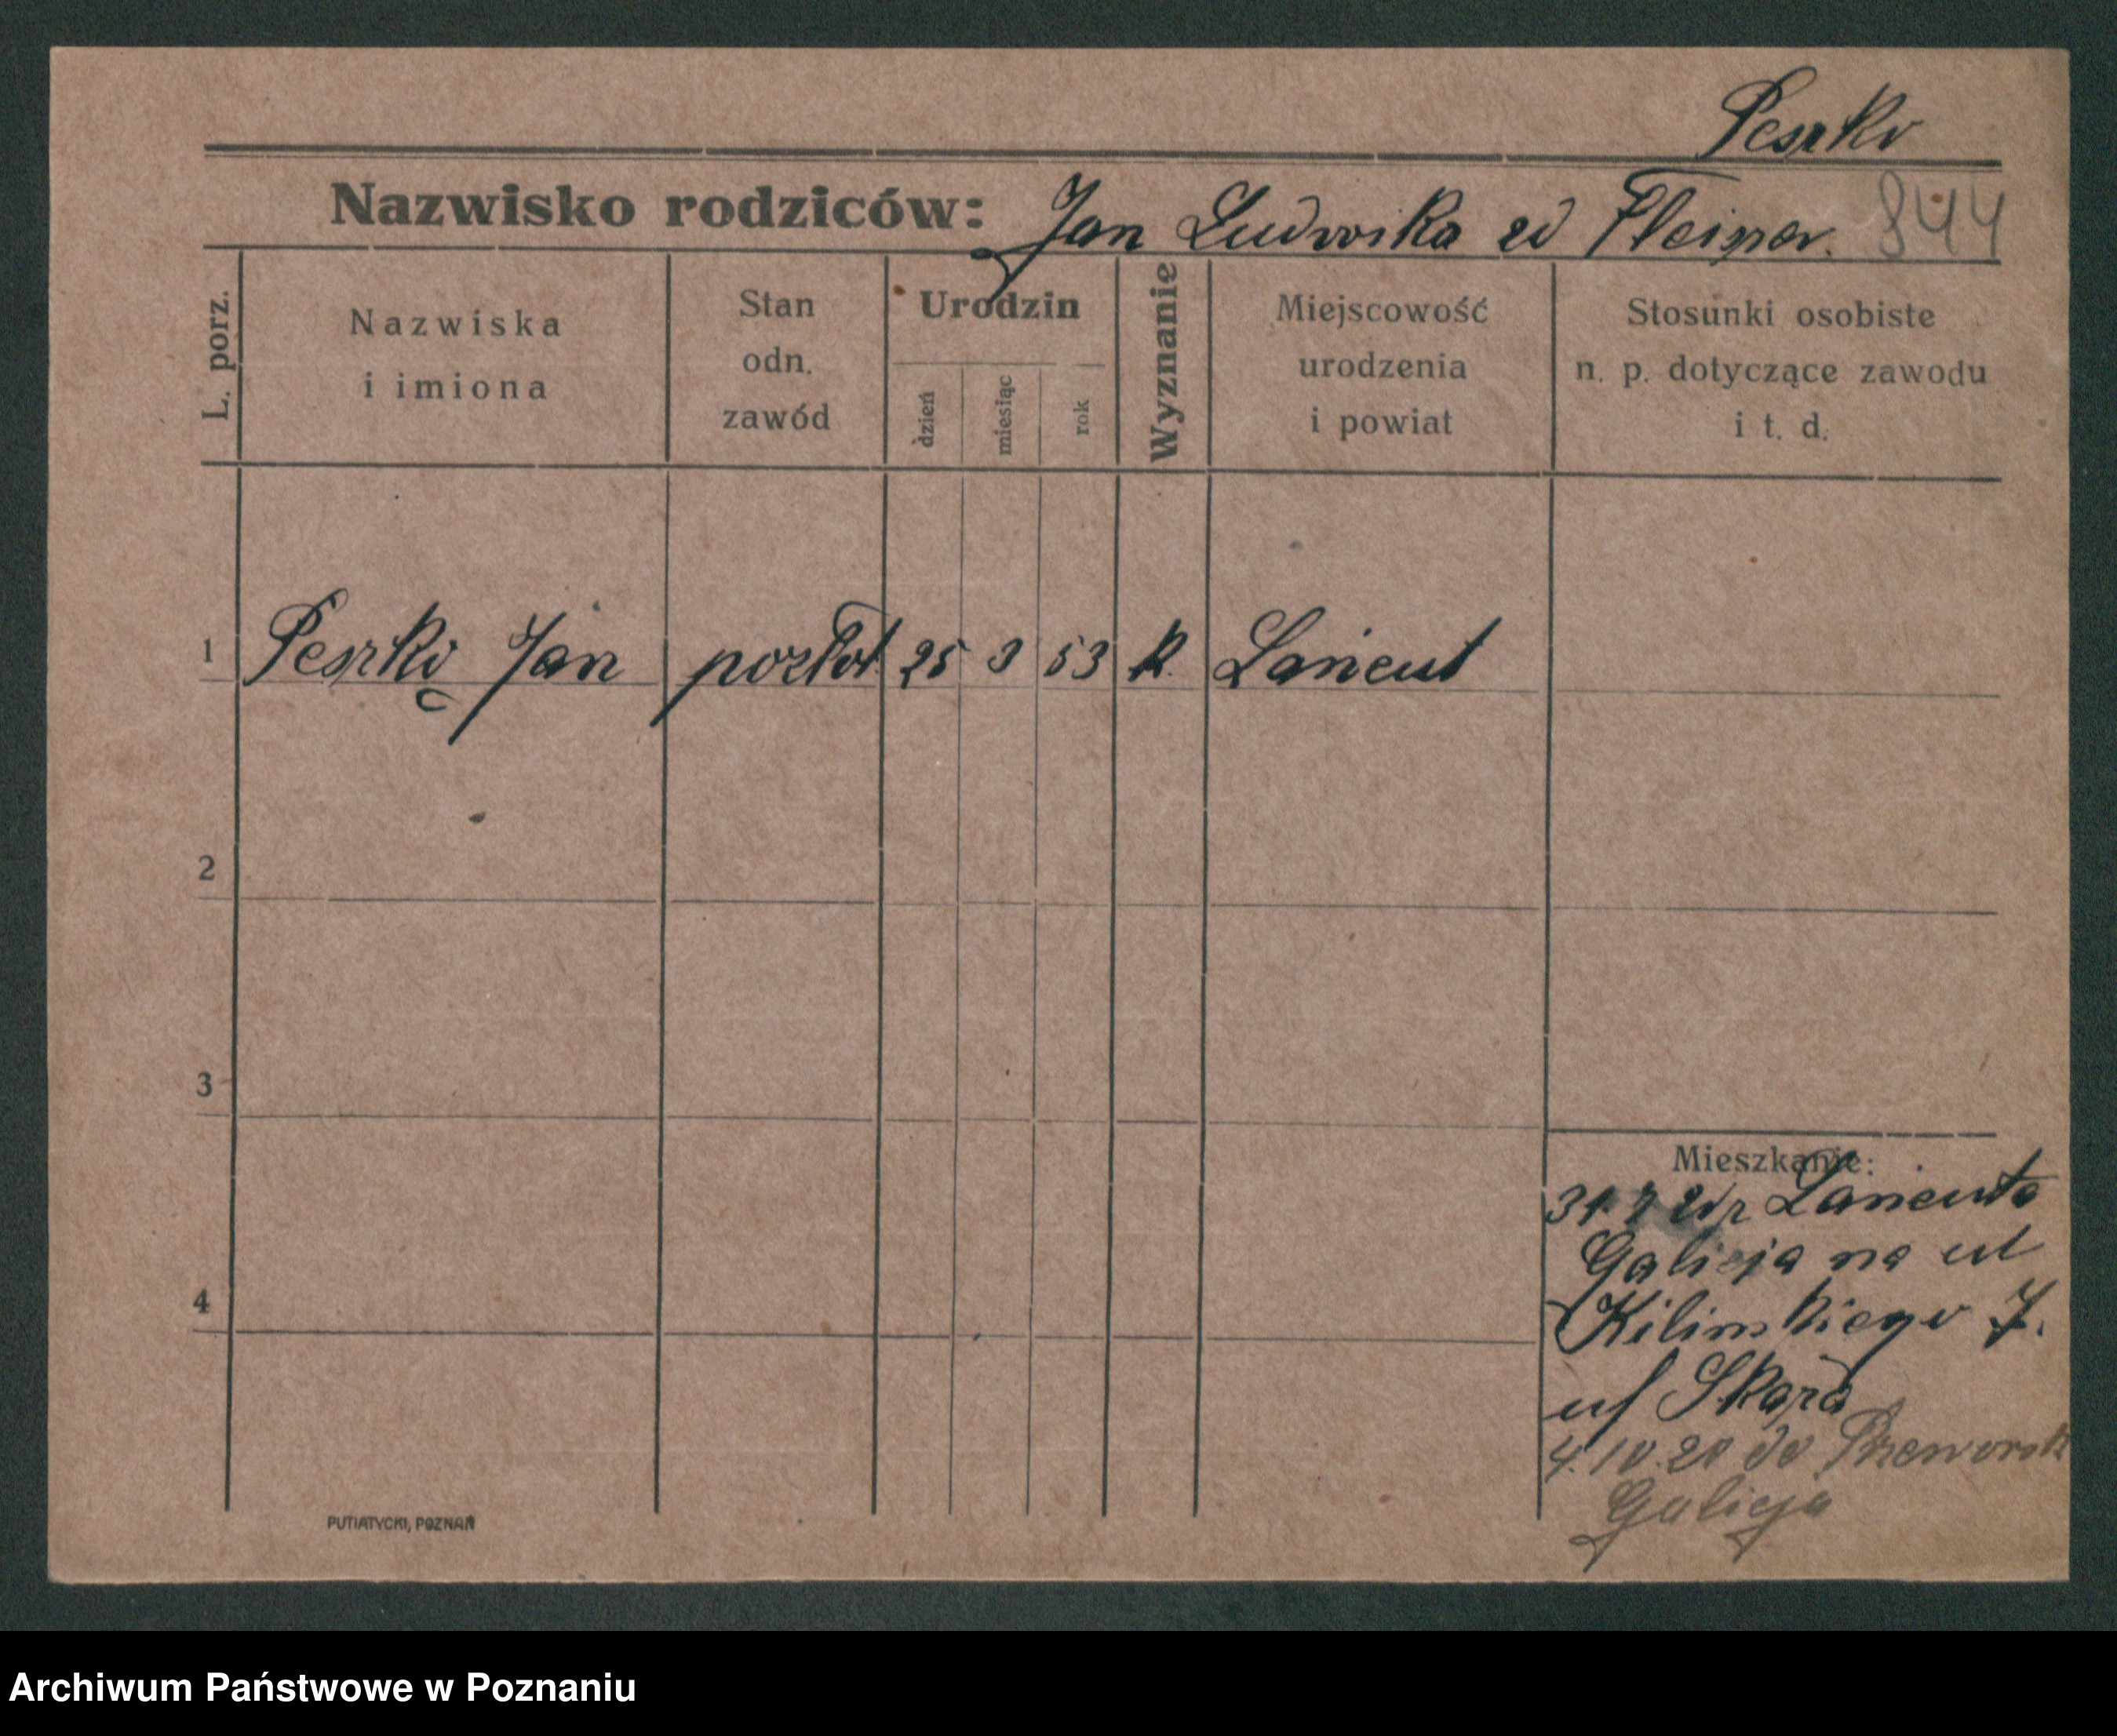 Peszko
Nazwisko rodziców: Jan Ludwika zd 844
L. porz.
Nazwiska
i imiona
Stan
odn.
zawód
Urodzin
dzień
miesiąc
rok
Wyznanie
Miejscowość
urodzenia
i powiat
Stosunki osobiste
n. p. dotyczące zawodu
i t. d.
1 Peszko Jan pozłot. 25 3 53 K. Łańcut
2
3
4
Mieszkanie:
Łańcuta
Galicja na ul
Kilińskiego 7.
4.10.20 do Przeworsk
Galicja
PUTIATYCKI, POZNAŃ
Archiwum Państwowe w Poznaniu